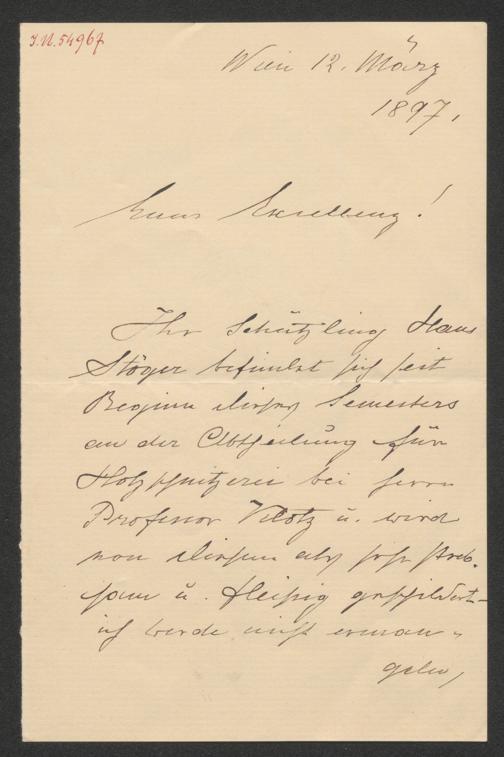 J.N. 54967
Wien 12. März
1897,
Euer Excellenz!
Ihr Schützling Hans
Stöger befindet sich seit
Beginn dieses Semesters
an der Abtheilung für
Holzschnitzerei bei Herrn
Professor Klotz u. wird
von diesem als sehr streb-
sam u. fleißig geschildert –
ich werde nicht erman-
geln,